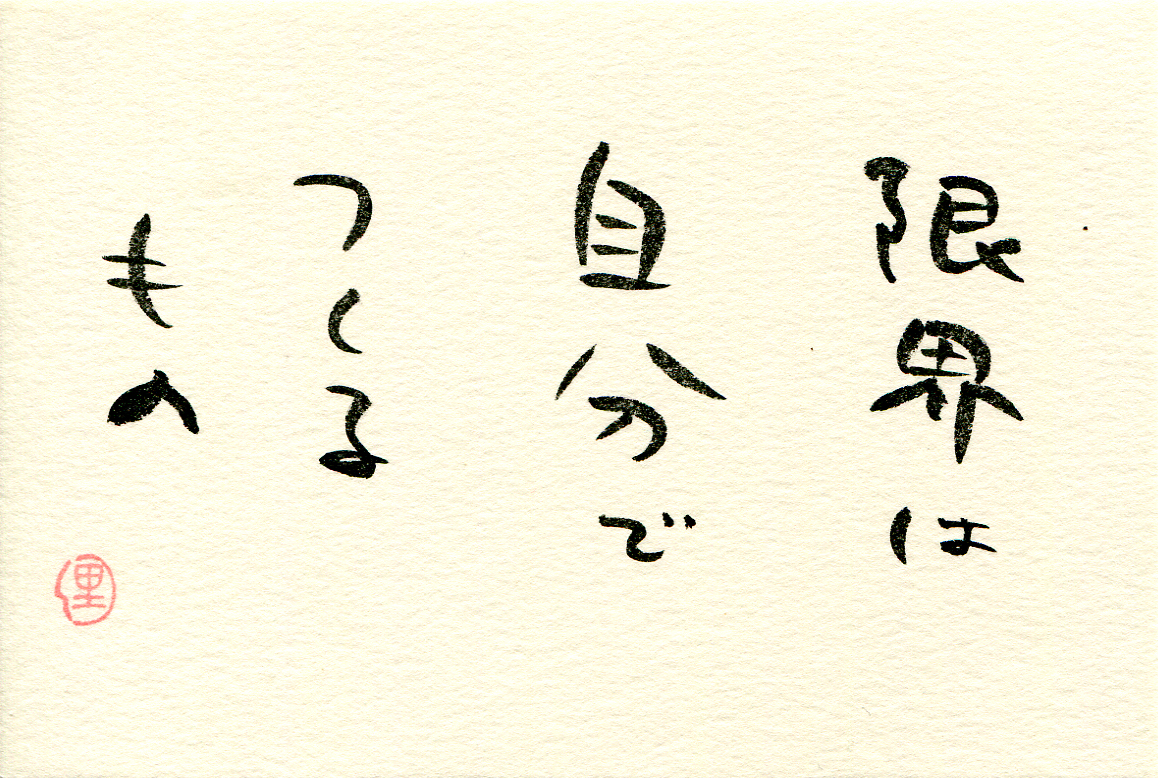 限界は
自分で
つくる
もの